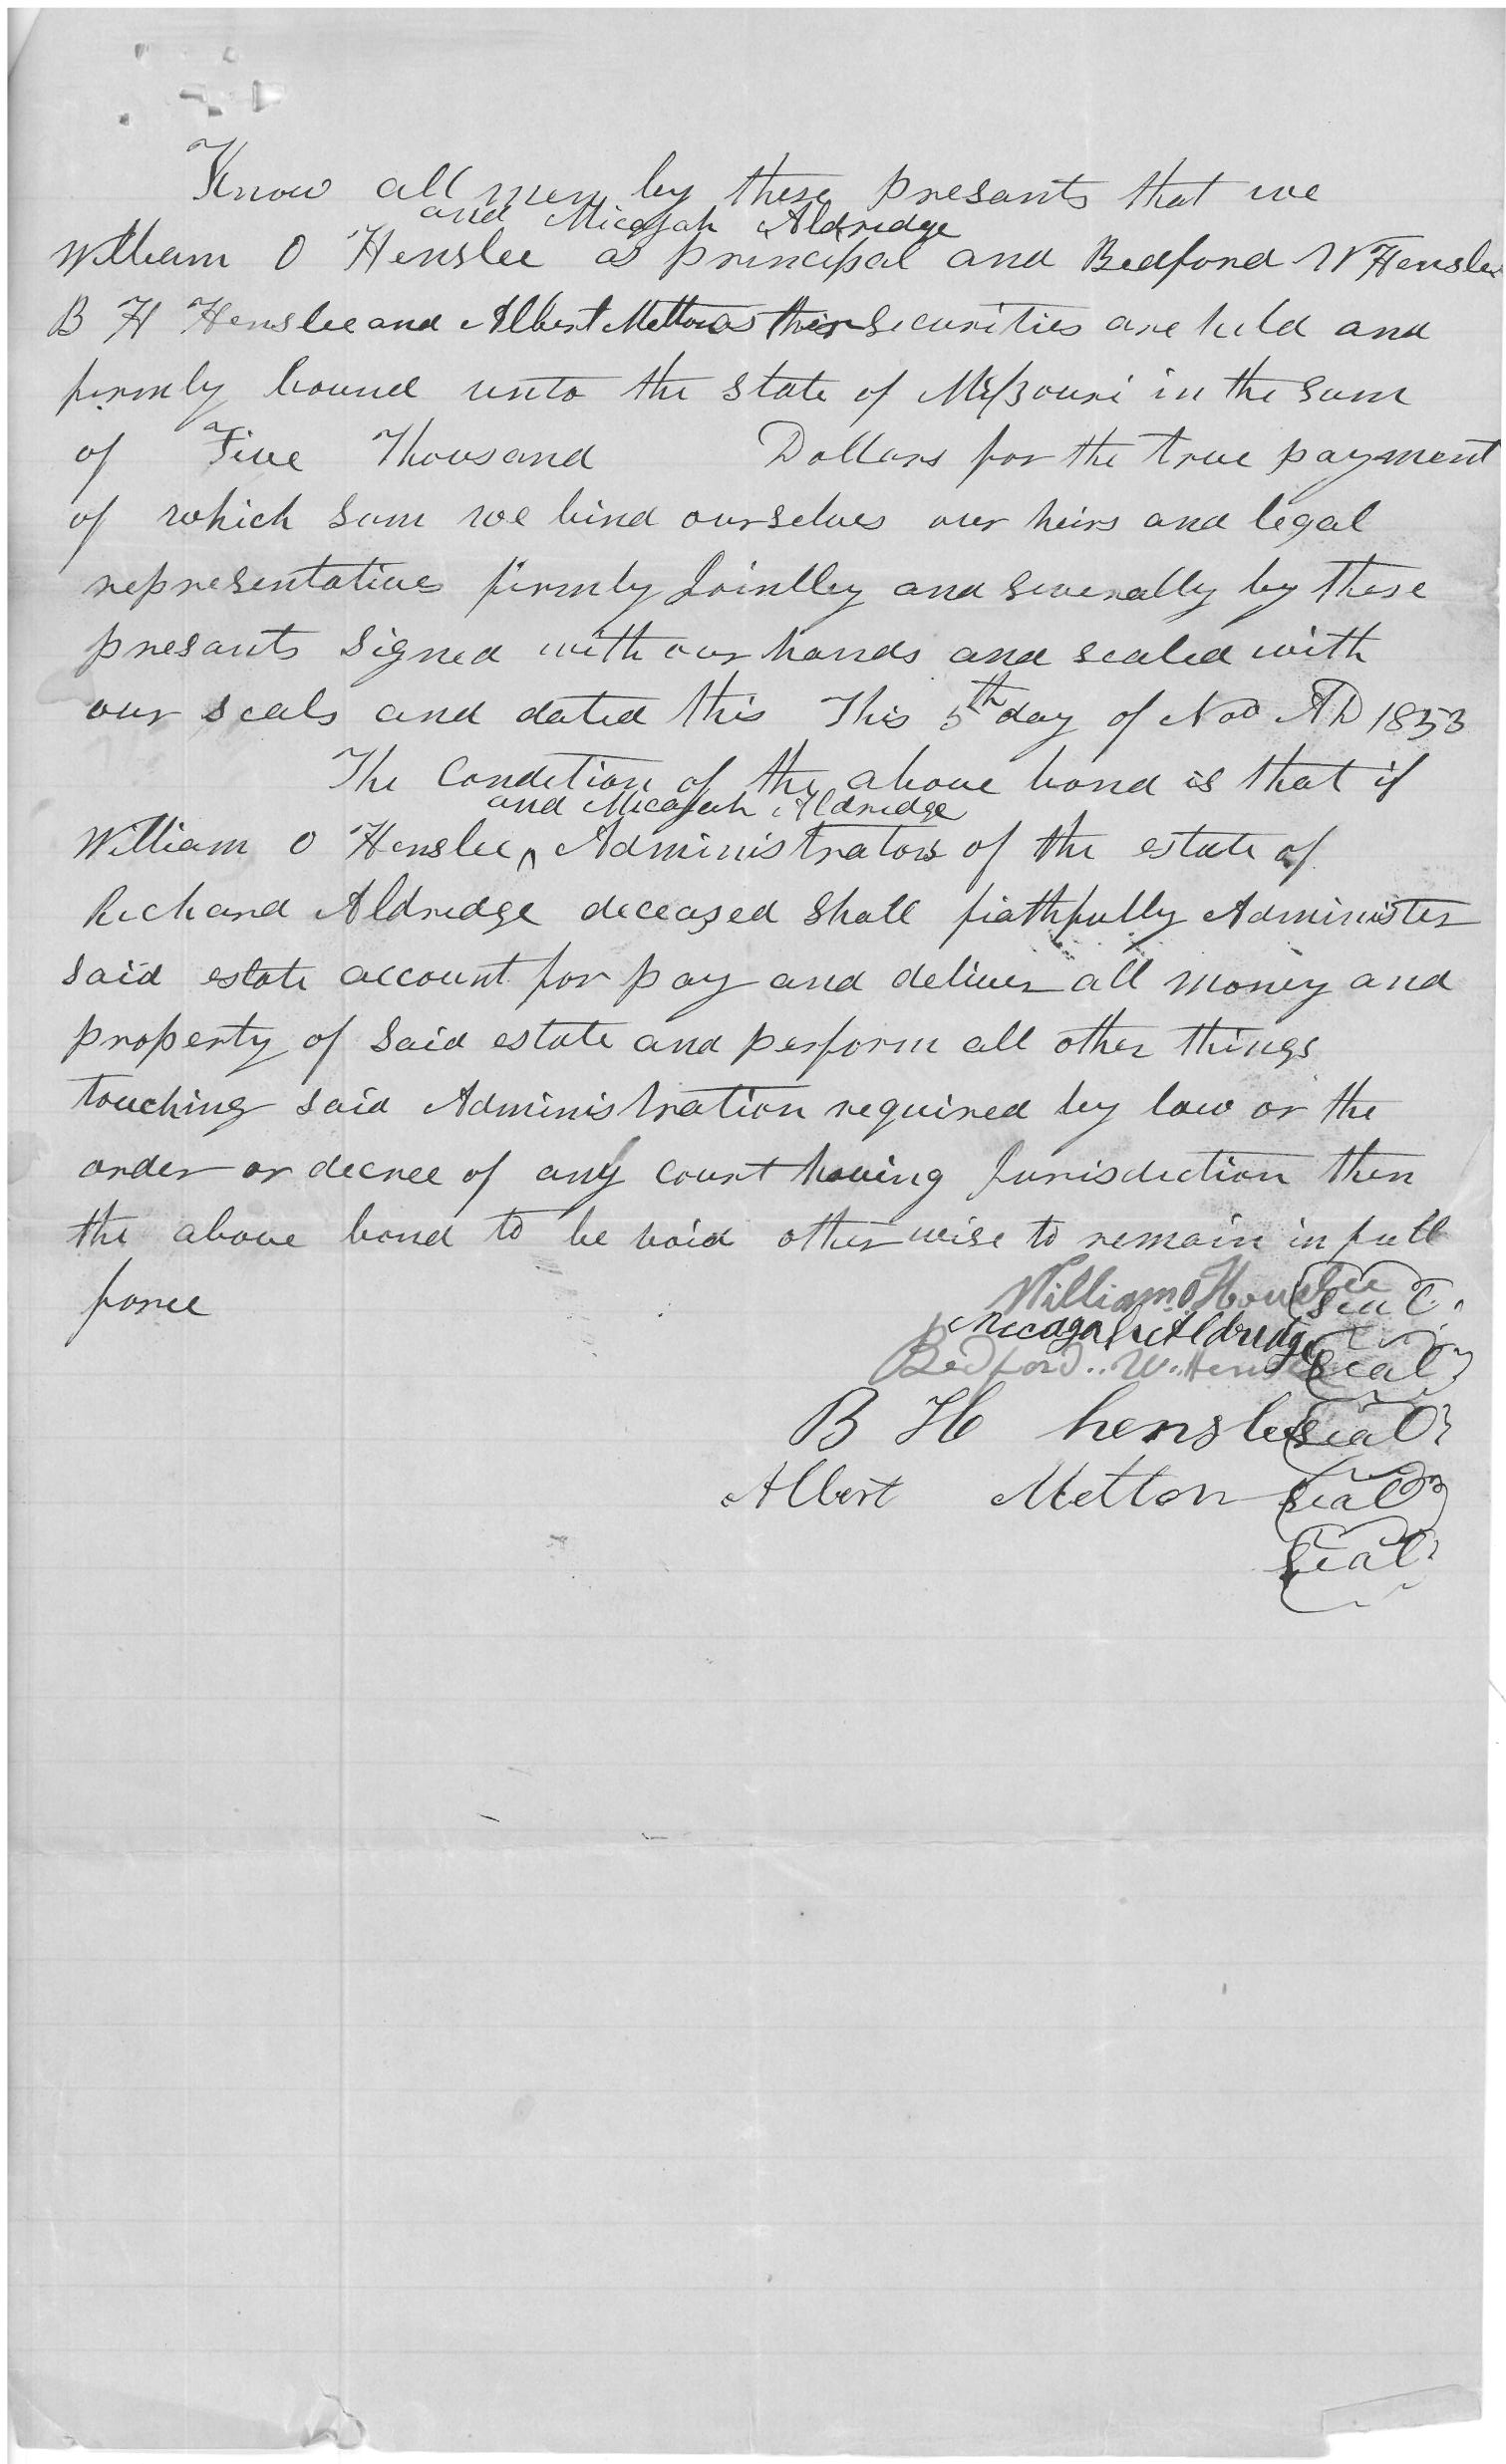 Know all men by these presants that we
and Micajah Aldridge
William O Henslee as principal and Bedford W Henslee
B H Henslee and Albert Metton as their Securities are held and
firmly bound unto the state of Missouri in the sum
of Five Thousand Dollars for the true payment
of which sum we bind ourselves our heirs and legal
representatives firmly Jointley and severally by these
presants signed with our hands and sealed with
our seals and dated this This 5th day of Nov AD 1853
The Condition of the above bond is that if
and Micajah Aldridge
William O Henslee ^ Administrators of the estate of
Richard Aldridge deceased shall fiathfully Administer
said estate account for pay and deliver all money and
property of said estate and perform all other things
touching said Administration required by law or the
order or decree of any court having Jurisdiction then
the above bond to be void otherwise to remain in full
force
William O Henslee Seal
Micagah Aldridge
Bedford W. Henslee Seal
B H henslee Seal
Albert Metton Seal
Seal